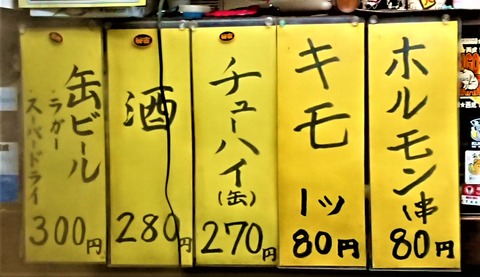 ホルモン(串)
80円
キモ
一ツ
80円
チューハイ
(缶)
270円
酒
280円
缶ビール
・ラガー
・スーパードライ
300円